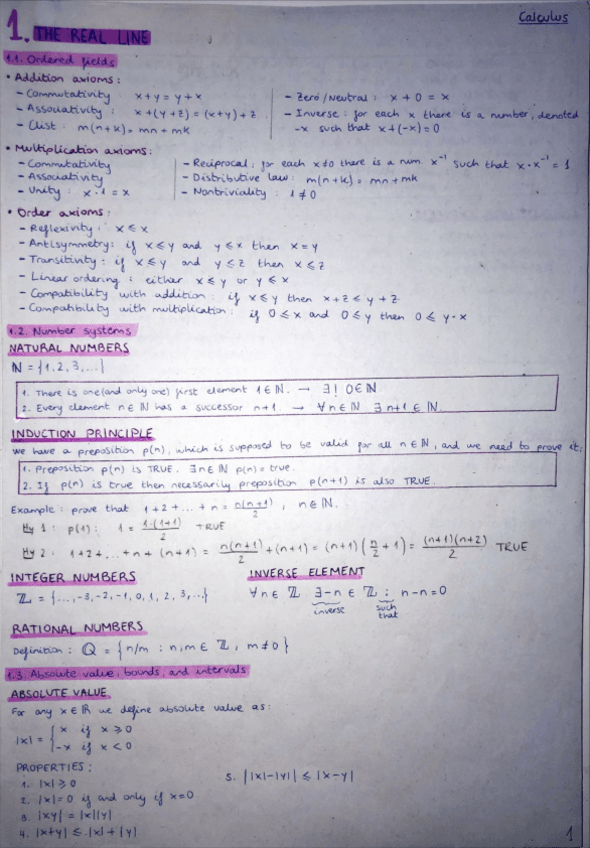 Calculus
1. THE REAL LINE
1.1. Ordered fields
• Addition axioms:
– Commutativity : x+y = y+x
– Associativity : x+(y+z) = (x+y)+z
– Clist : m(n+k) = mn+mk
– Zero/Neutral : x + 0 = x
– Inverse : for each x there is a number, denoted
-x such that x+(-x)=0
• Multiplication axioms:
– Commutativity
– Associativity
– Unity : x·1 = x
– Reciprocal : for each x≠0 there is a num. x⁻¹ such that x·x⁻¹ = 1
– Distributive law : m(n+k) = mn+mk
– Nontriviality : 1≠0
• Order axioms:
– Reflexivity : x ≤ x
– Antisymmetry: if x≤y and y≤x then x=y
– Transitivity : if x≤y and y≤z then x≤z
– Linear ordering : either x≤y or y≤x
– Compatibility with addition : if x≤y then x+z ≤ y+z
– Compatibility with multiplication : if 0≤x and 0≤y then 0≤ y·x
1.2. Number systems
NATURAL NUMBERS
ℕ = {1,2,3,...}
1. There is one (and only one) first element 1∈ℕ. → ∃! 0∈ℕ
2. Every element n∈ℕ has a successor n+1. → ∀n∈ℕ ∃n+1∈ℕ.
INDUCTION PRINCIPLE
We have a preposition p(n), which is supposed to be valid for all n∈ℕ, and we need to prove it.
1. Preposition p(n) is TRUE. ∃n∈ℕ p(n)=true.
2. If p(n) is true then necessarily preposition p(n+1) is also TRUE.
Example : prove that 1+2+...+n = n(n+1)/2 , n∈ℕ.
Hy 1 : p(1) : 1 = 1·(1+1)/2 TRUE
Hy 2 : 1+2+...+n+(n+1) = n(n+1)/2 + (n+1) = (n+1)(n/2 + 1) = (n+1)(n+2)/2 TRUE
INTEGER NUMBERS
ℤ = {...,-3,-2,-1,0,1,2,3,...}
INVERSE ELEMENT
∀n∈ ℤ ∃-n ∈ ℤ : n-n=0
inverse such
that
RATIONAL NUMBERS
Definition : ℚ = {n/m : n,m∈ ℤ, m≠0}
1.3. Absolute value, bounds, and intervals
ABSOLUTE VALUE
For any x∈ℝ we define absolute value as:
|x| = { x if x≥0
-x if x<0
PROPERTIES:
1. |x|≥0
2. |x|=0 if and only if x=0
3. |xy| = |x||y|
4. |x+y| ≤ |x|+|y|
5. ||x|-|y|| ≤ |x-y|
1